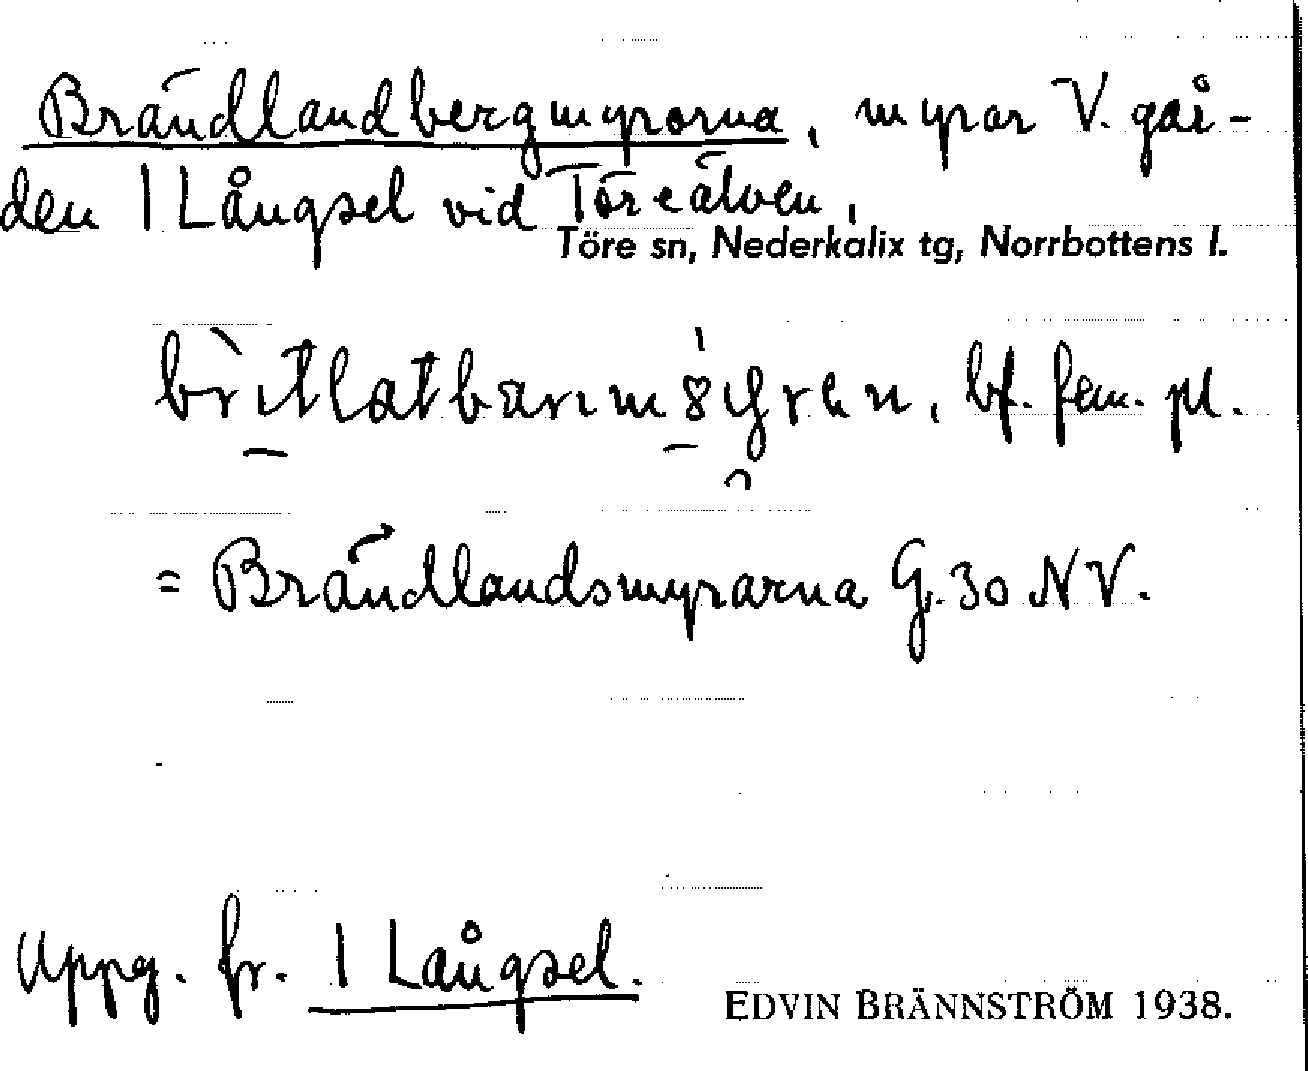 Brändlandbergmyrorna, myrar V. går-
den 1 Långsel vid Töreälven,
Töre sn, Nederkalix tg, Norrbottens l.
bf. fem. pl.
= Brändlandsmyrarna G. 30 NV.
Uppg. fr. 1 Långsel.
EDVIN BRÄNNSTRÖM 1938.